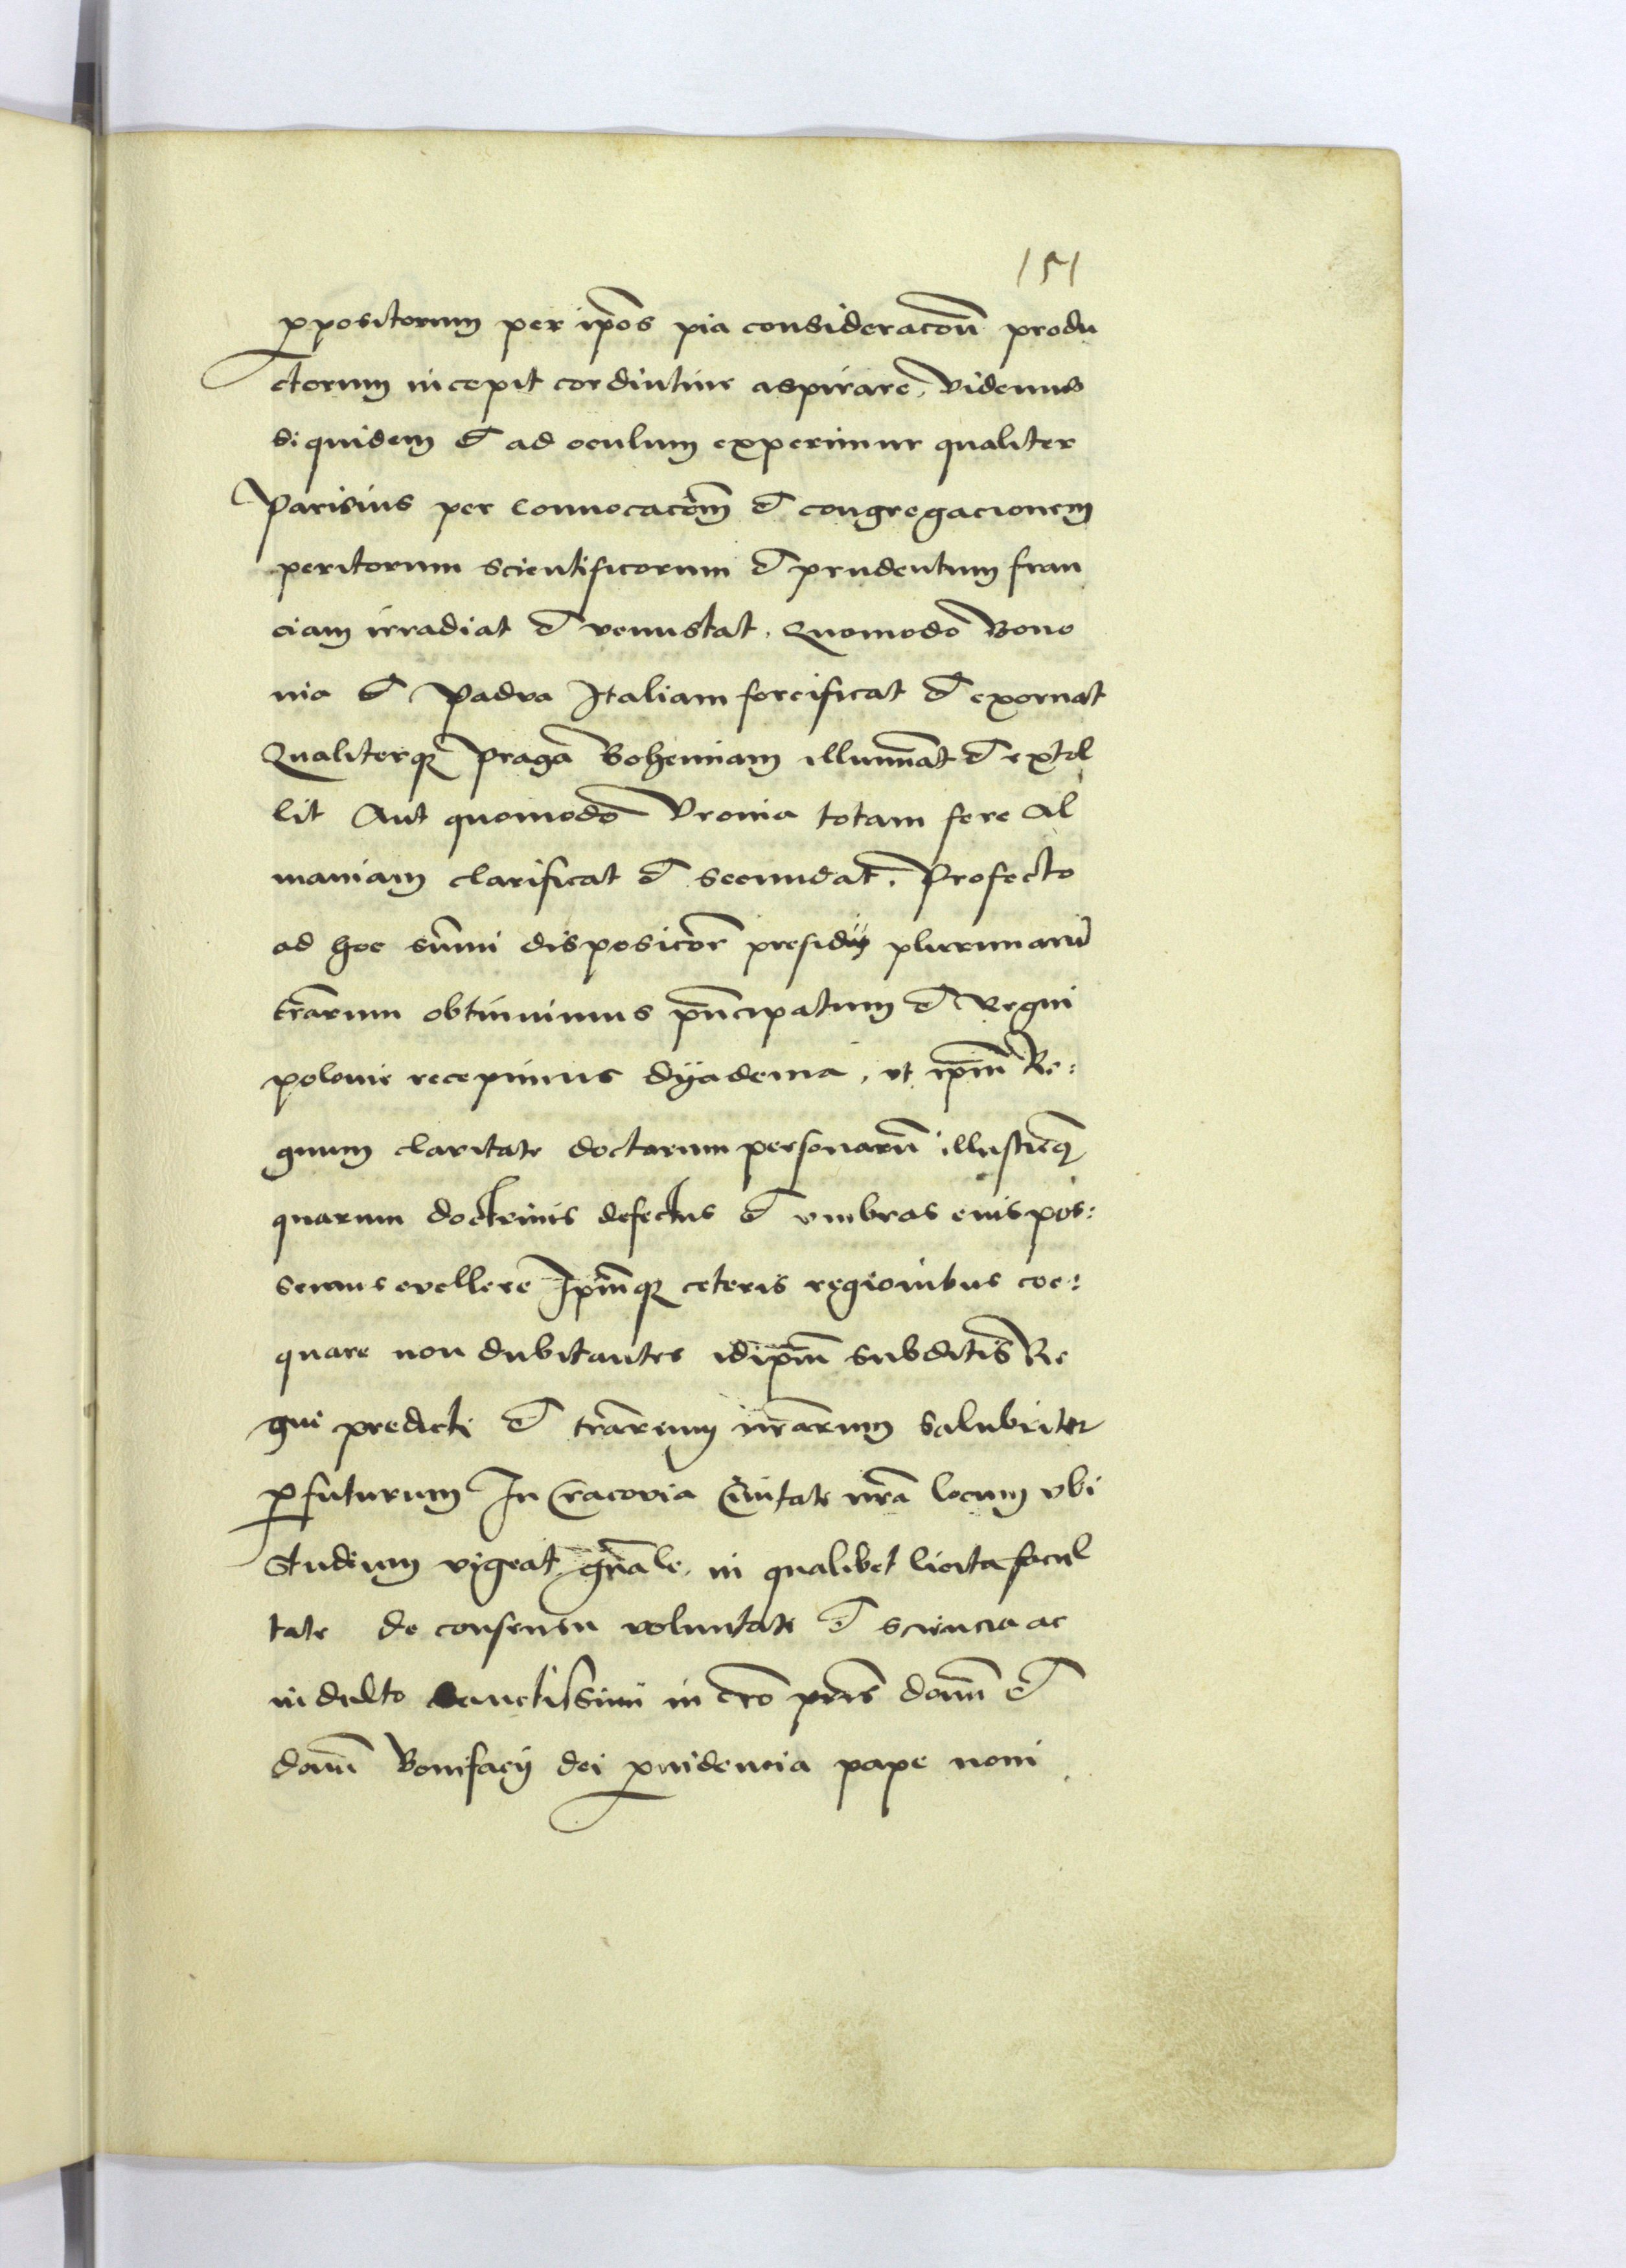 151
ꝓpositorum per ip̄os pia consideracōn̄ produ
ctorum incepit cordintius aspirare, videmus
siquidem et ad oculum experimur qualiter
Parisius per convocacōm̄ et congregacionem
peritorum scientificorum et prudentum fran
ciam irradiat et venustat. Quomodo Bono
nia et Padva Italiam forcificat et exornat
Qualiterqꝫ praga Bohemiam illumīat et extol
lit Aut quomodo Uronia totam fere Al
maniam clarificat et secundat. Profecto
ad hoc sūmi disposicōe presidy plurimarū
tr̄arum obtinuimus pn̄cipatum et Regni
polonie recepimus dÿadema, ut ip̄m̄ Re:
gnum claritate doctarum personarū illustrēqꝫ
quarum doctrinis defectus et umbras eius pos:
semus evellere Ip̄m̄qꝫ ceteris regionibus coe:
quare non dubitantes idip̄m̄ subditis Re
gni predicti et tr̄arum nr̄arum salubriter
ꝓfuturum In Cracovia Civitate nr̄a locum ubi
Studium vigeat gn̄ale in qualibet licita facul
tate de consensu voluntate et sciencia ac
indulto sanctissimi in cr̄o pr̄is domī et
domī Bonifacÿ dei ꝓvidencia pape noni